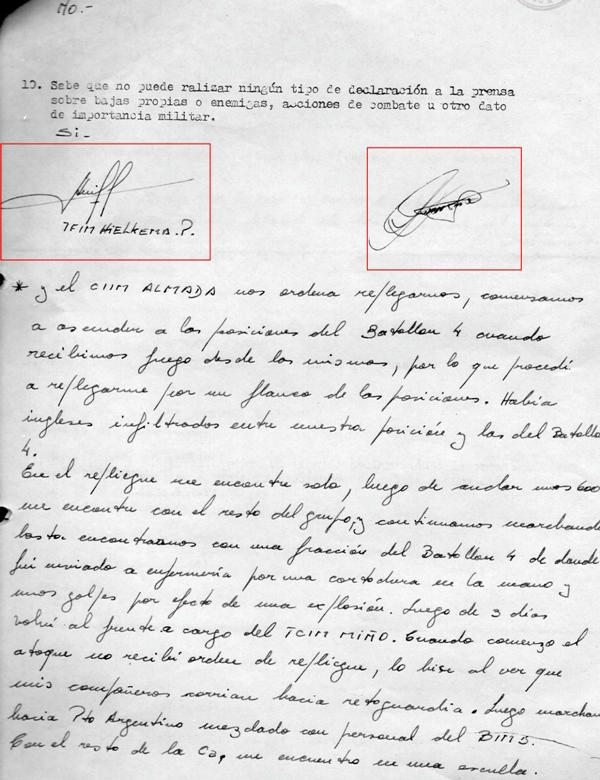 NO.-
10. Sabe que no puede ralizar ningún tipo de declaración a la prensa
sobre bajas propias o enemigas, acciones de combate u otro dato
de importancia militar.
Si-
TFIM HIELKEMA. P.
* y el CIIM ALMADA nos ordena replegarnos, comensamos
a ascender a las posiciones del Batallon 4 cuando
recibimos fuego desde las mismas, por lo que procedí
a replegarme por un flanco de las posiciones. Había
ingleses infiltrados entre nuestra posición y las del Batallon
4.
En el repliegue me encontre solo, luego de andar unos 600
me encontre con el resto del grupo, y continuamos marchando
hasta encontrarnos con una fracción del Batallon 4 de donde
fui enviado a enfermería por una cortadura en la mano y
unos golpes por efecto de una explosión. Luego de 3 días
volví al frente a cargo del TCIM MIÑO. Cuando comenzo el
ataque no recibí orden de repliegue, lo hise al ver que
mis compañeros corrian hacia retoguardia. Luego marchan
hacia Pto Argentino mezclado con personal del BIM5.
Con el resto de la Ca, me encuentro en una escuela.